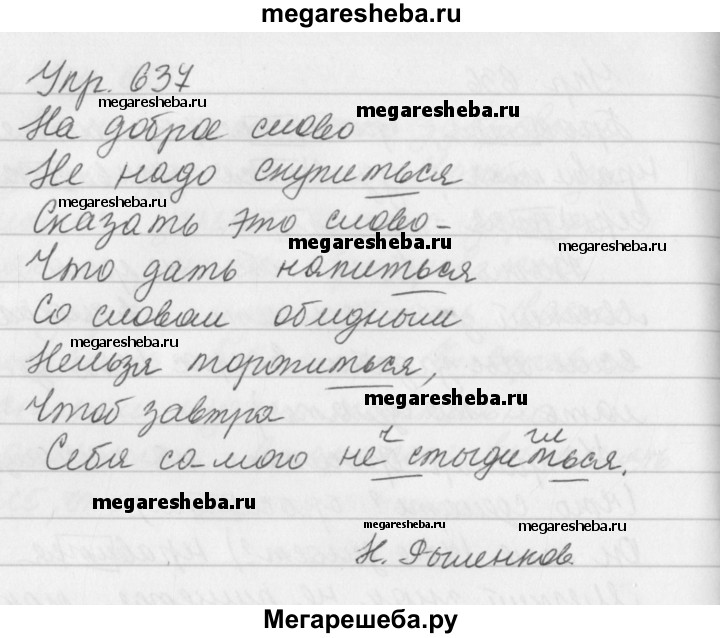 megaresheba.ru
Упр. 637
megaresheba.ru
На доброе слово megaresheba.ru
Не надо скупиться
megaresheba.ru
Сказать это слово –
megaresheba.ru megaresheba.ru
Что дать напиться
Со словом обидным
megaresheba.ru
Нельзя торопиться,
megaresheba.ru
Чтоб завтра
ч ш
Себя са-мого не стыдиться.
megaresheba.ru
megaresheba.ru megaresheba.ru
Н. Рыленков
Мегарешеба.ру